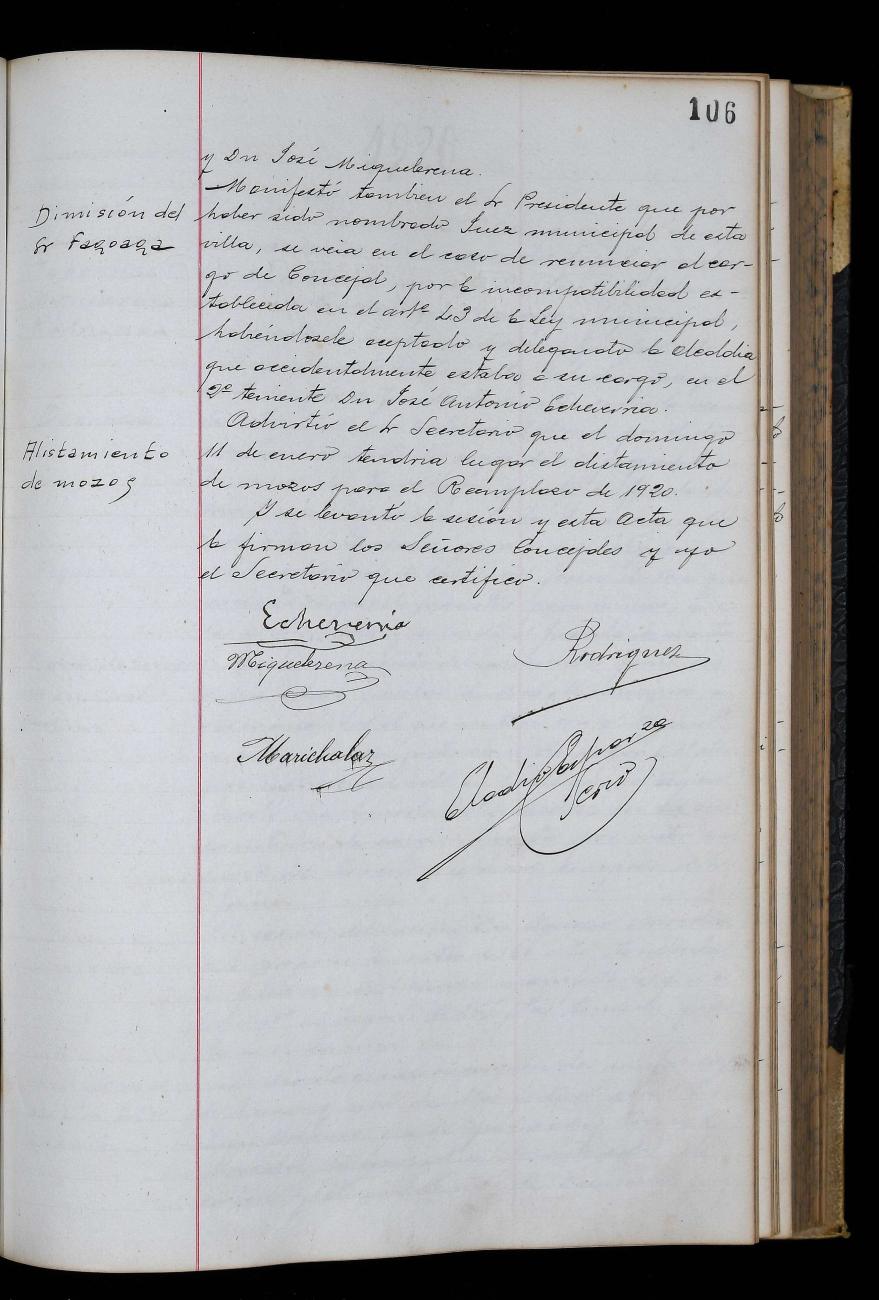 106
y Dn José Miquelerena.
Manifestó tambien el Sr Presidente que por
Dimisión del
Sr Fagoaga
haber sido nombrado Juez municipal de esta
villa, se veia en el caso de renunciar el car-
go de Concejal, por la incompatibilidad es-
tablecida en el artº 43 de la Ley municipal,
habiéndosele aceptado y delegando la Alcaldia
que accidentalmente estaba a su cargo, en el
2º teniente Dn José Antonio Echeverria.
Alistamiento
de mozos
Advirtió el Sr Secretario que el domingo
11 de enero tendria lugar el alistamiento
de mozos para el Reemplazo de 1920.
Y se levantó la sesión y esta Acta que
la firman los Señores Concejales y yo
el Secretario que certifico.
Echeverria
Miquelerena
Rodriguez
Marichalar
Eladio Esparza
Scrio